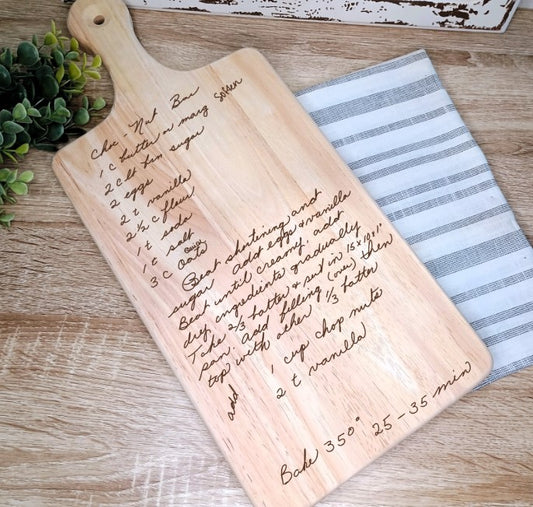 Choc-Nut Bar
1 C butter or marg soften
2 C lt brn sugar
2 eggs
2 t vanilla
2 ½ C flour
1 t soda
1 t salt
3 C Quick Oats
Beat shortening and
sugar add eggs & vanilla
Beat until creamy. add
dry ingredients gradually
Take 2/3 batter & put in 15 x 10 x 1"
pan. Add filling (over) then
top with other 1/3 batter
add 1 cup chop nuts
2 t vanilla
Bake 350° 25-35 min